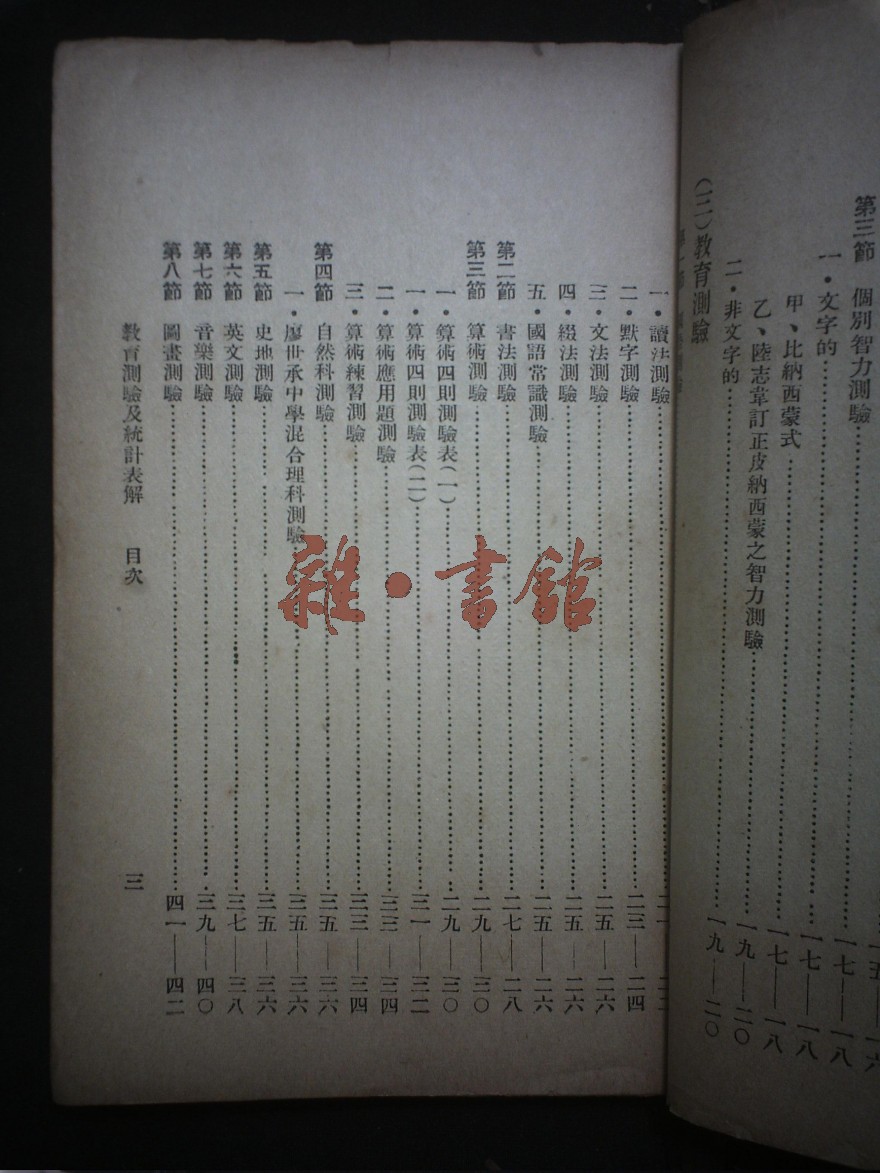 第三節　個別智力測驗
一・文字的…………一七——一八
甲、比納西蒙式…………一七——一八
乙、陸志韋訂正皮納西蒙之智力測驗　一七——一八
二・非文字的…………一九——二〇
(二)教育測驗…………一九——二〇
一・讀法測驗…………
二・默字測驗…………二三——二四
三・文法測驗…………二五——二六
四・綴法測驗…………二五——二六
五・國語常識測驗…………二五——二六
第二節　書法測驗…………二七——二八
第三節　算術測驗…………二九——三〇
一・算術四則測驗表(一)…………二九——三〇
一・算術四則測驗表(二)…………三一——三二
二・算術應用題測驗…………三三——三四
三・算術練習測驗…………三三——三四
第四節　自然科測驗…………三五——三六
一・廖世承中學混合理科測驗…………三五——三六
第五節　史地測驗…………三五——三六
第六節　英文測驗…………三七——三八
第七節　音樂測驗…………三九——四〇
第八節　圖畫測驗…………四一——四二
教育測驗及統計表解　目次　三
雜・書館